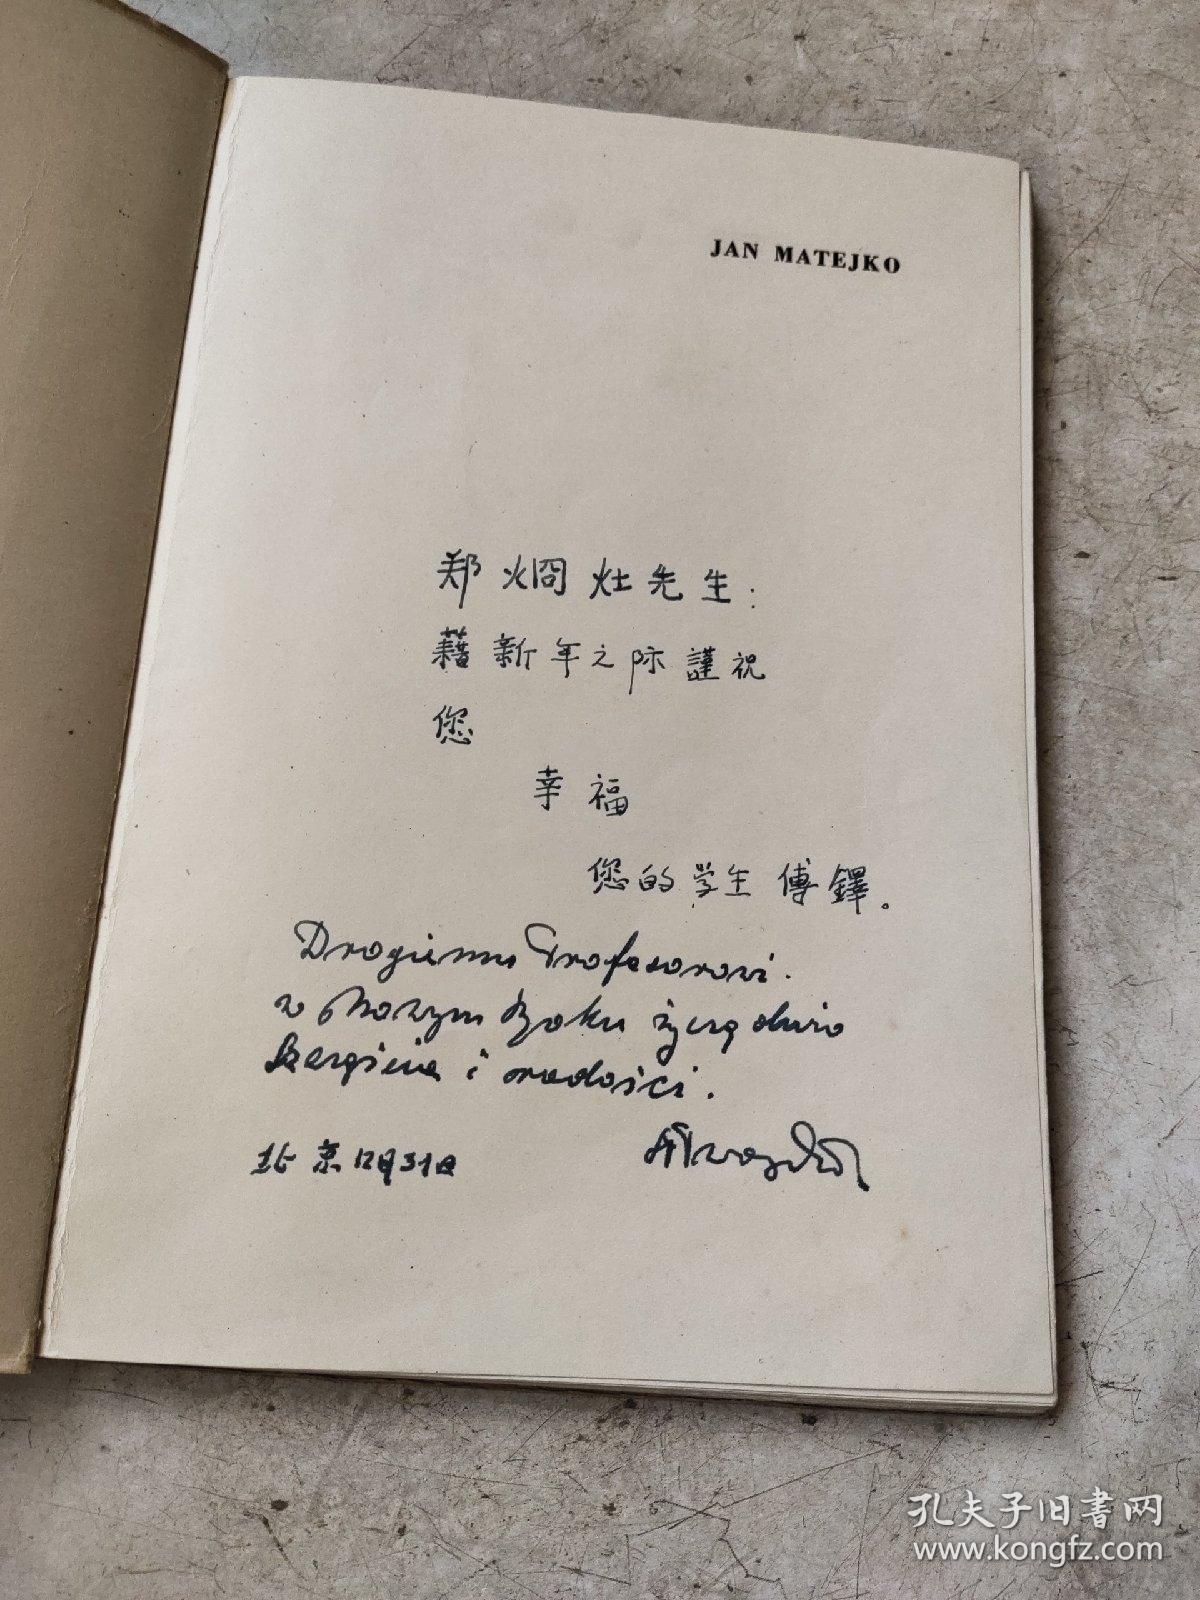 JAN MATEJKO
郑炯灶先生：
藉新年之际謹祝
您
幸福
您的学生傅鐸。
Drogiemu Profesorowi.
w Nowym Roku życzę dużo
szczęścia i radości.
北京12月31日
孔夫子旧書网
www.kongfz.com